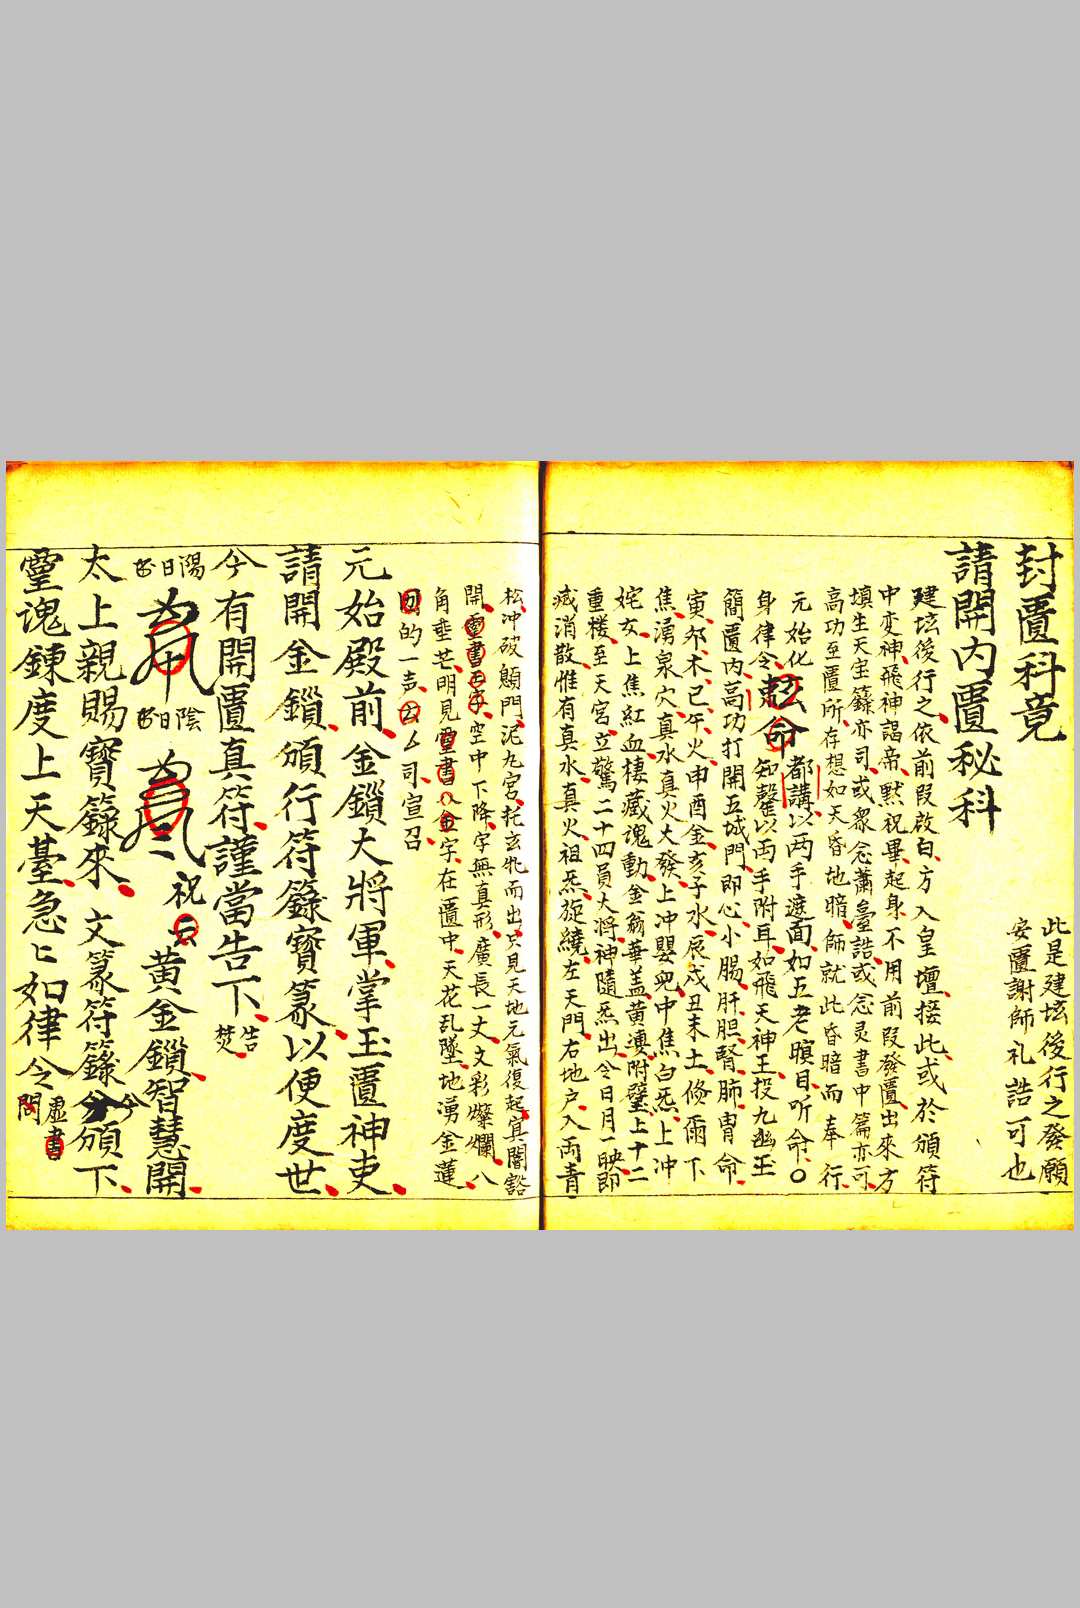 封匱科竟
此是建坛後行之發願
安匱謝師礼誥可也
請開內匱秘科
建坛後行之依前叚啟白方入皇壇接此或於頒符
中变神飛神謁帝默祝畢起身不用前叚發匱出來方
填生天宝籙亦司或衆念蕭臺誥或念灵書中篇亦可
高功至匱所存想如天昏地暗師就此昏暗而奉行
元始化 都講以两手遮面如五老瞑目听命〇
身律令 勅命 知磬以两手附耳如飛天神王投九幽玉
簡匱內高功打開五城門即心小腸肝胆腎肺胃命
寅夘木巳午火申酉金亥子水辰戌丑未土俻雨下
焦湧泉穴真水真火大發上冲嬰兒中焦白炁上冲
姹女上焦紅血棲藏魂動金翁華盖黄凄附璧上十二
重楼至天宮立驚二十四員大将神隨炁出令日月一映即
消散惟有真水真火祖炁旋繞左天門右地户入両青
松冲破顖門泥九宮托玄牝而出只見天地元氣復起冥闇豁
開靈書 空中下降字無真形廣長一丈文彩燦爛八
角垂芒明見靈書八金字在匱中天花乱墜地湧金蓮
的一声云厶司宣召
元始殿前金鎖大將軍掌玉匱神吏
請開金鎖頒行符籙寶篆以便度世
今有開匱真符謹當告下 告焚
陽日 陰日 祝云黄金鎖智慧開
太上親賜寶籙來文篆符籙今頒下
靈魂鍊度上天臺急〻如律令 虛書